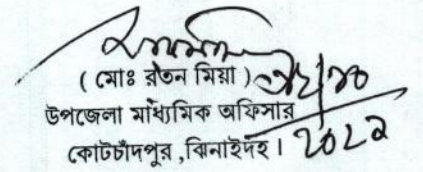 ( মোঃ রতন মিয়া )
উপজেলা মাধ্যমিক অফিসার
কোটচাঁদপুর ,ঝিনাইদহ।